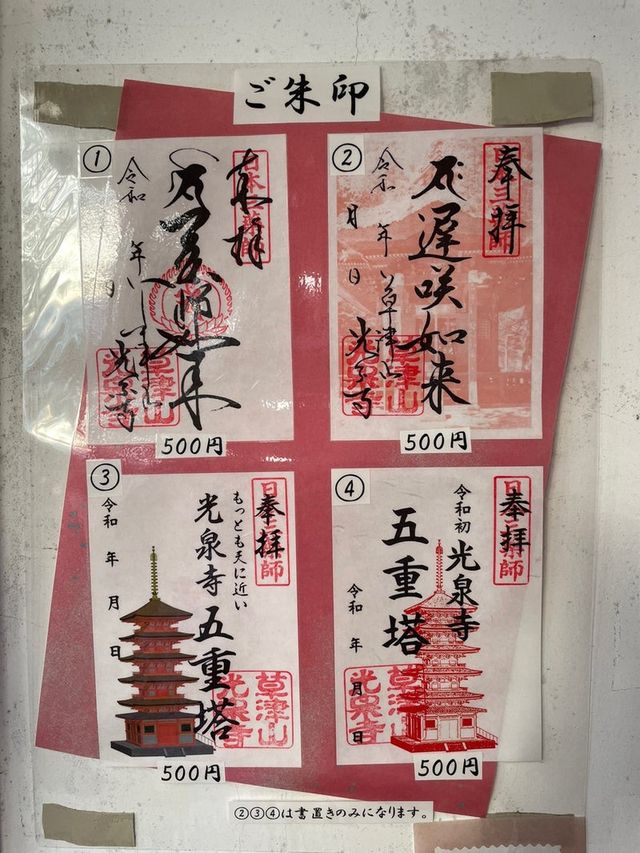 ご朱印
①
奉拝
令和 年 月 日
草津山
光泉寺
500円
②
奉拝
遅咲如来
令和 年 月 日
草津山
光泉寺
500円
③
奉拝
もっとも天に近い
光泉寺 五重塔
令和 年 月 日
草津山
光泉寺
500円
④
奉拝
令和初 光泉寺
五重塔
令和 年 月 日
草津山
光泉寺
500円
②③④は書置きのみになります。